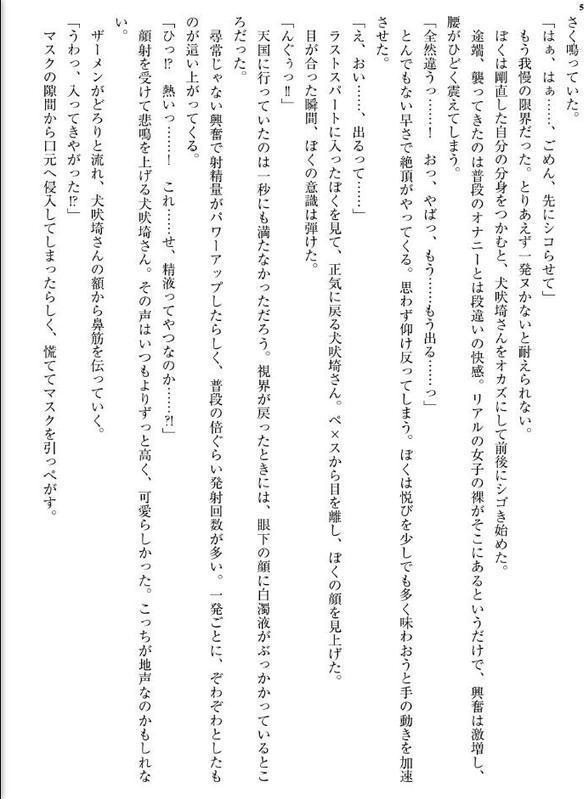 5
さく鳴っていた。
「はぁ、はぁ……、ごめん、先にシコらせて」
もう我慢の限界だった。とりあえず一発ヌかないと耐えられない。
ぼくは剛直した自分の分身をつかむと、犬吠埼さんをオカズにして前後にシゴき始めた。
途端、襲ってきたのは普段のオナニーとは段違いの快感。リアルの女子の裸がそこにあるというだけで、興奮は激増し、
腰がひどく震えてしまう。
「全然違うっ……！　おっ、やばっ、もう……もう出る……っ」
とんでもない早さで絶頂がやってくる。思わず仰け反ってしまう。ぼくは悦びを少しでも多く味わおうと手の動きを加速
させた。
「え、おい……、出るって……」
ラストスパートに入ったぼくを見て、正気に戻る犬吠埼さん。ペ×スから目を離し、ぼくの顔を見上げた。
目が合った瞬間、ぼくの意識は弾けた。
「んぐぅっ‼」
天国に行っていたのは一秒にも満たなかっただろう。視界が戻ったときには、眼下の顔に白濁液がぶっかかっているとこ
ろだった。
尋常じゃない興奮で射精量がパワーアップしたらしく、普段の倍ぐらい発射回数が多い。一発ごとに、ぞわぞわとしたも
のが這い上がってくる。
「ひっ⁉　熱いっ……！　これ……せ、精液ってやつなのか……⁈」
顔射を受けて悲鳴を上げる犬吠埼さん。その声はいつもよりずっと高く、可愛らしかった。こっちが地声なのかもしれな
い。
ザーメンがどろりと流れ、犬吠埼さんの額から鼻筋を伝っていく。
「うわっ、入ってきやがった⁉」
マスクの隙間から口元へ侵入してしまったらしく、慌ててマスクを引っぺがす。